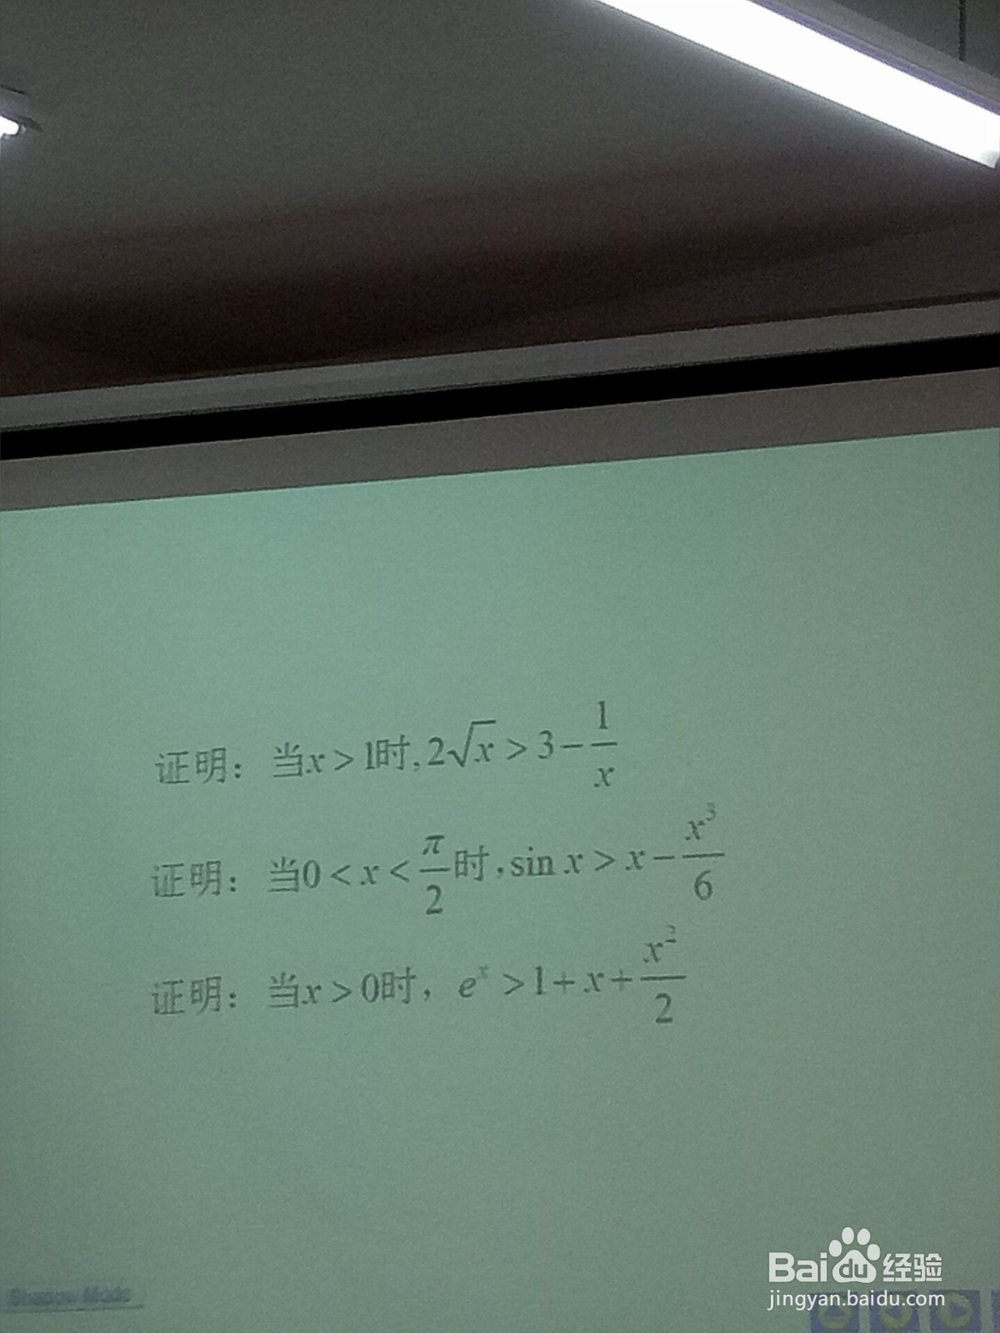 证明：当x>1时,2√x>3-1/x
证明：当0<x<π/2时,sin x>x-x³/6
证明：当x>0时，e^x>1+x+x²/2
Shadow Mode
Bai du 经验
jingyan.baidu.com